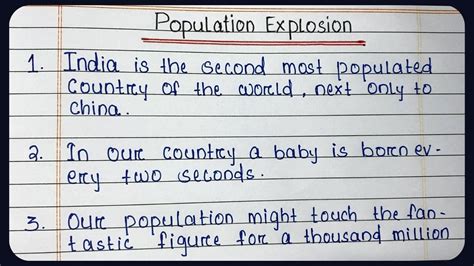 Population Explosion
1. India is the second most populated
Country of the world, next only to
China.
2. In our country a baby is born ev-
ery two seconds.
3. Our population might touch the fan-
tastic figure for a thousand million